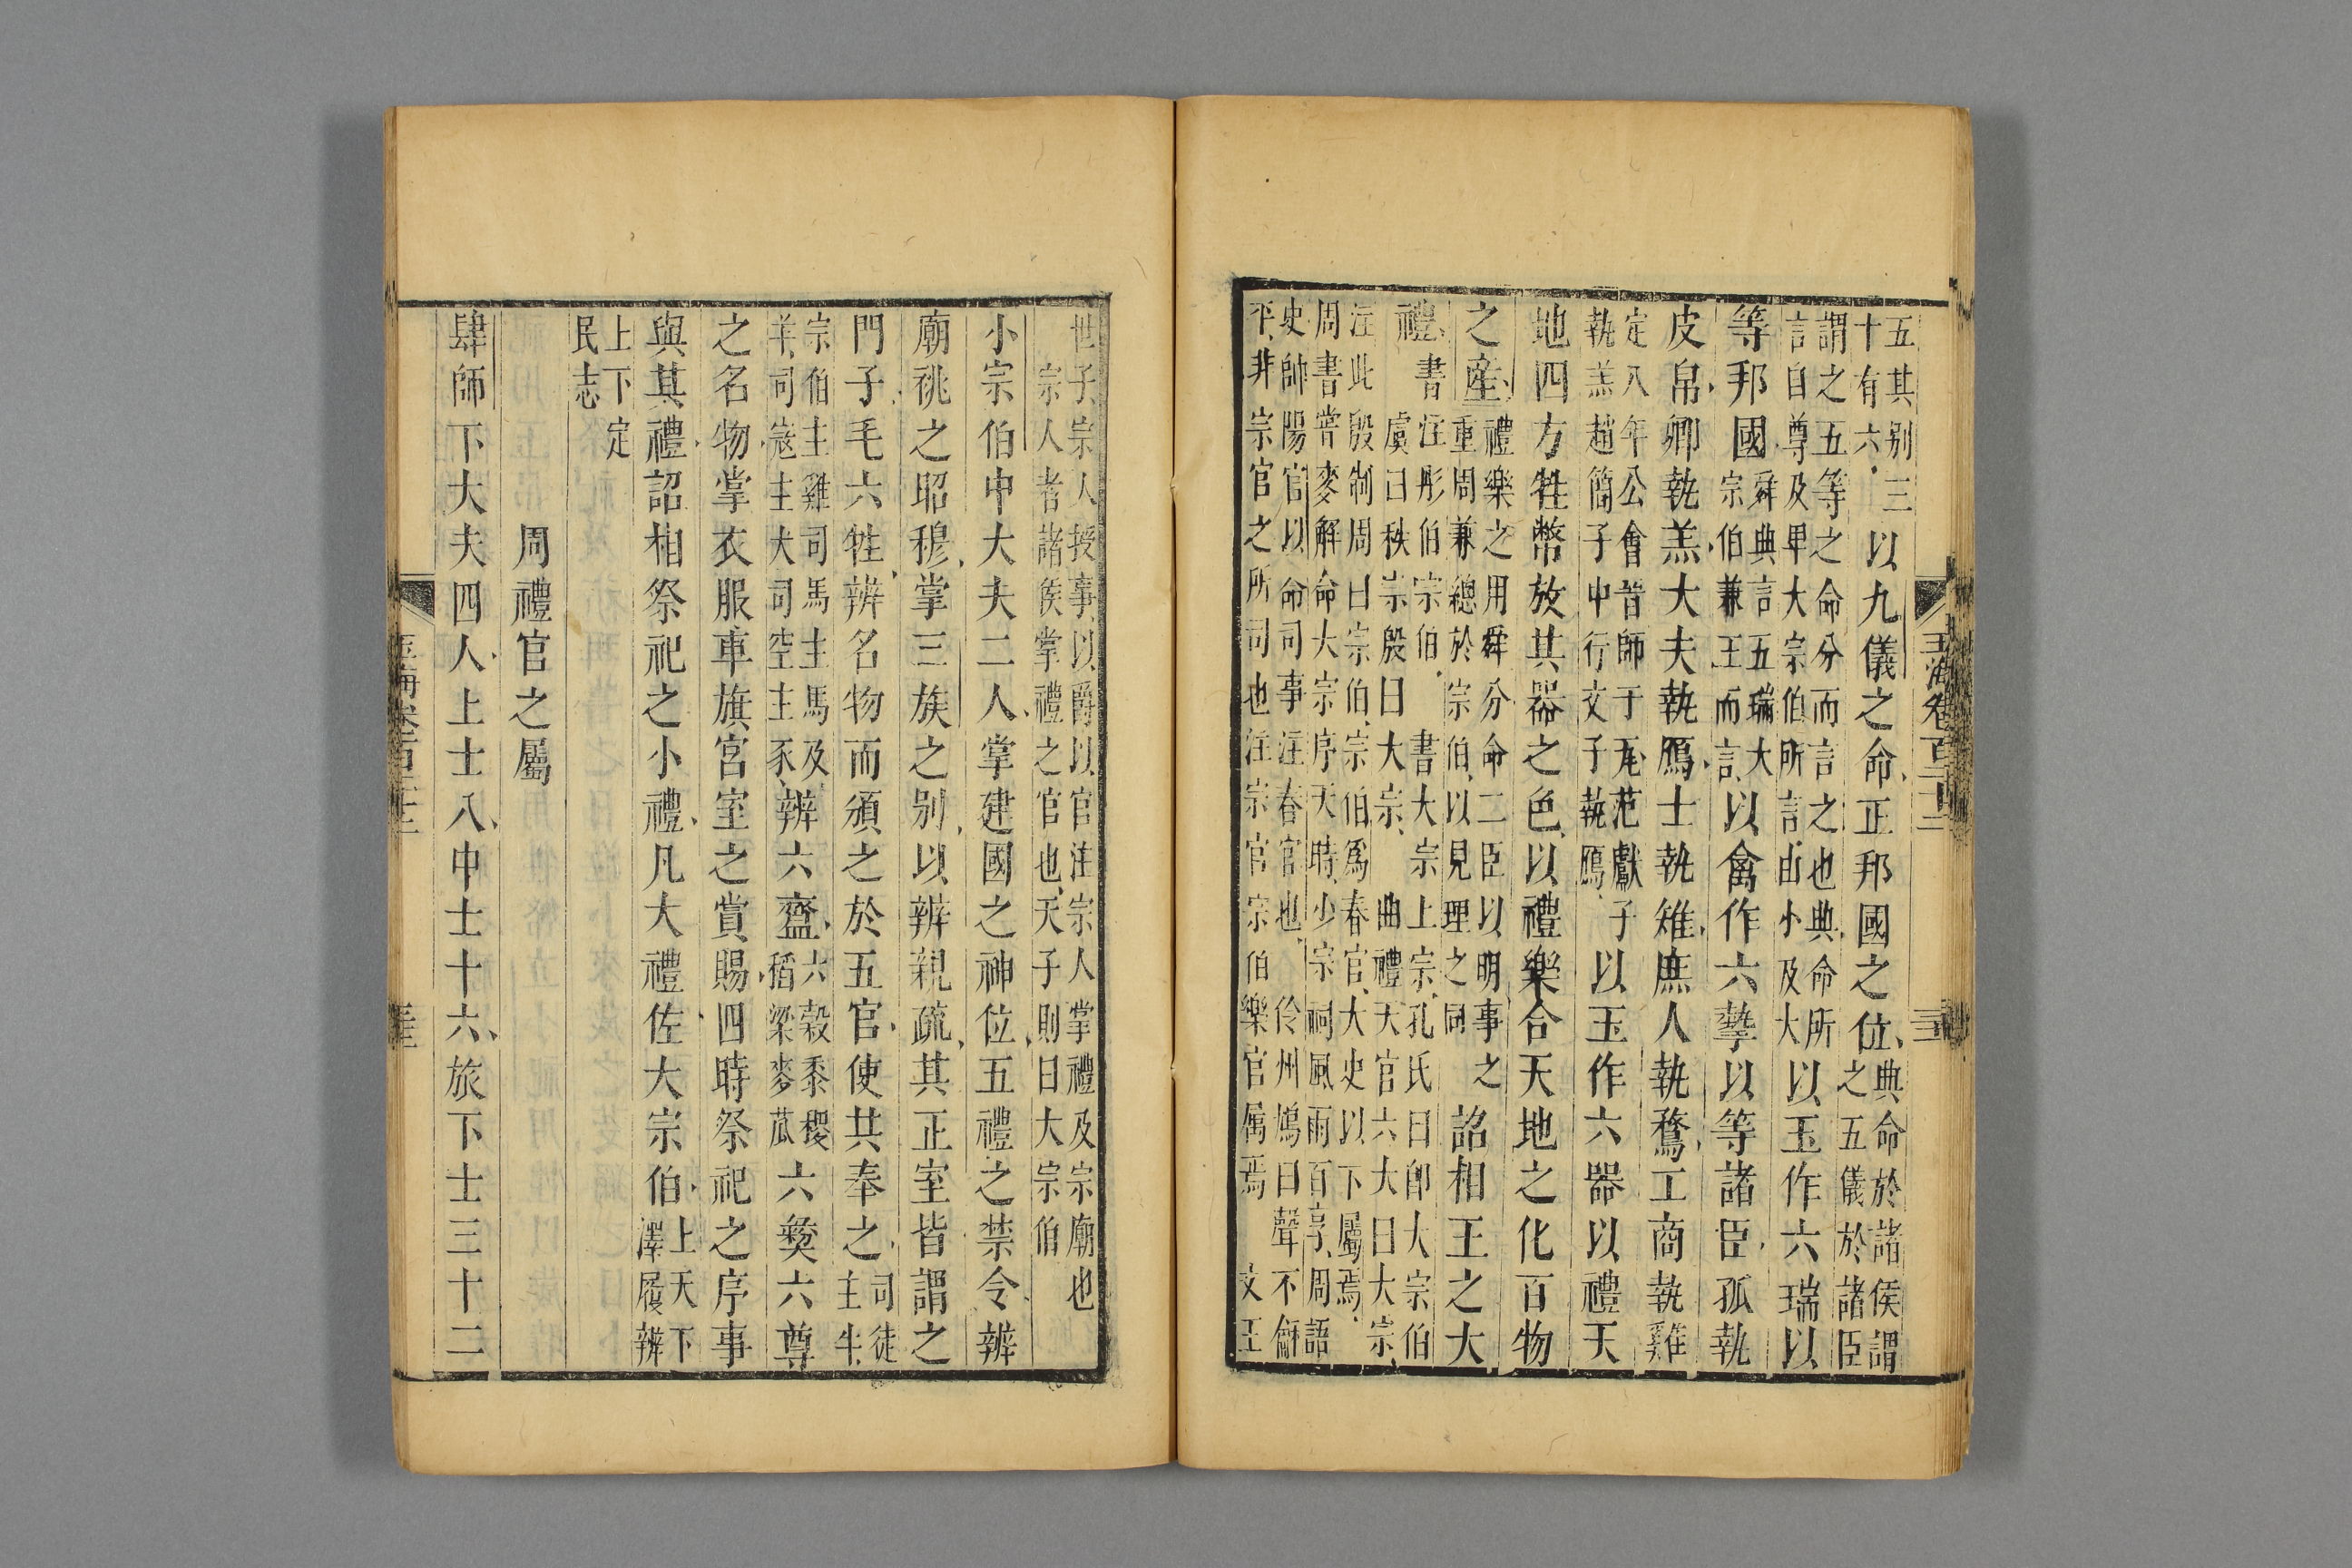 五其别三
十有六
以九儀之命正邦國之位
典命於諸侯謂
之五儀於諸臣
謂之五等之命分而言之也典命所
言自尊及卑大宗伯所言由小及大
以玉作六瑞以
等邦國
舜典言五瑞大
宗伯兼王而言
以禽作六摯以等諸臣孤執
皮帛卿執羔大夫執鴈士執雉庶人執鶩工商執雞
定八年公會晉師于瓦范獻子
執羔趙簡子中行文子執鴈
以玉作六器以禮天
地四方牲幣放其器之色以禮樂合天地之化百物
之產
禮樂之用舜分命二臣以明事之
重周兼總於宗伯以見理之同
詔相王之大
禮
書注彤伯宗伯
書大宗上宗孔氏曰即大宗伯
虞曰秩宗殷曰大宗
曲禮天官六大曰大宗
注此殷制周曰宗伯宗伯爲春官大史以下屬焉
周書嘗麥解命大宗序天時少宗祠風雨百享周語
史帥陽官以命司事注春官也
伶州鳩曰聲不龢
平非宗官之所司也注宗官宗伯樂官屬焉
文王
玉海卷百二十三
世子宗人授事以爵以官注宗人掌禮及宗廟也
宗人者諸侯掌禮之官也天子則曰大宗伯
小宗伯中大夫二人掌建國之神位五禮之禁令辨
廟祧之昭穆掌三族之别以辨親疏其正室皆謂之
門子毛六牲辨名物而頒之於五官使共奉之
司徒
主牛
宗伯主雞司馬主馬及
羊司寇主犬司空主豕
辨六齍
六穀黍稷
稻粱麥苽
六彝六尊
之名物掌衣服車旗宮室之賞賜四時祭祀之序事
與其禮詔相祭祀之小禮凡大禮佐大宗伯
上天下
澤履辨
上下定
民志
周禮官之屬
肆師下大夫四人上士八中士十六旅下士三十二